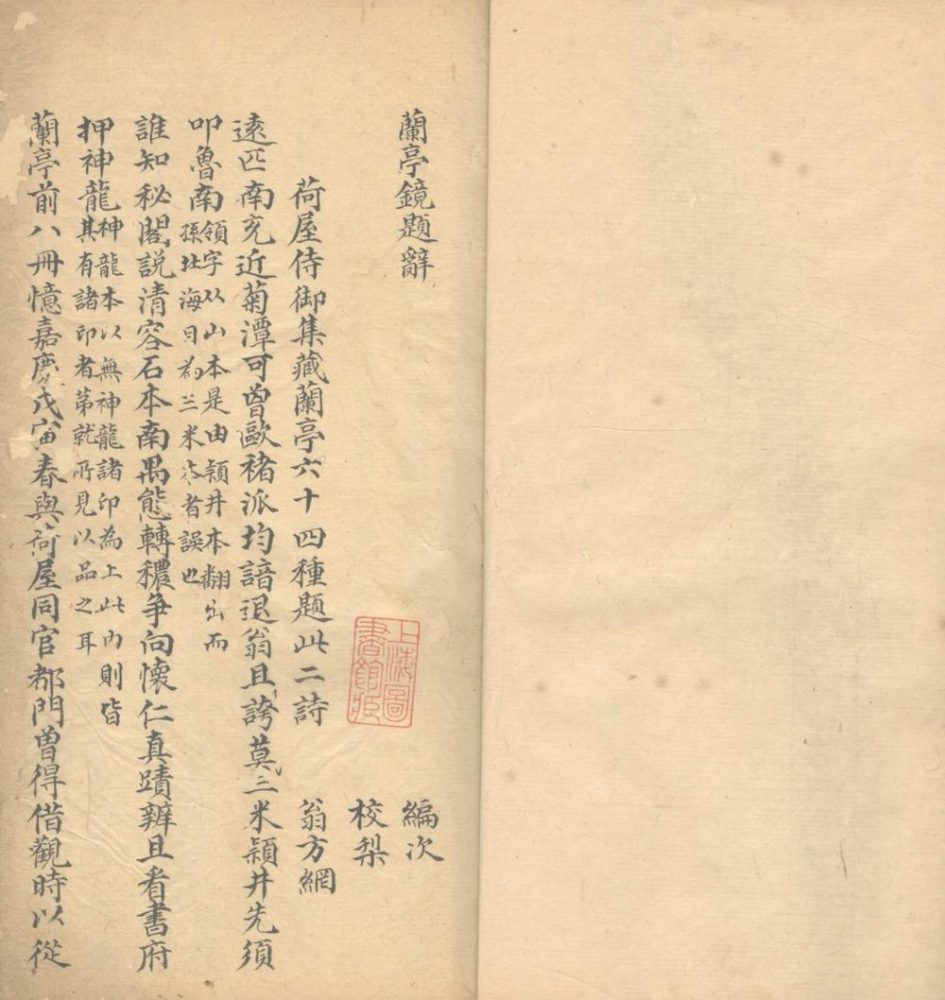 蘭亭鏡題辭
編次
校梨
荷屋侍御集藏蘭亭六十四種題此二詩
翁方網
遠匹南兖近菊潭可曾歐褚派均諳退翁且誇莫三米潁井先須
叩魯南領字从山本是由潁井本翻出而
孫壯海目為三米者誤也
誰知秘閣説清容石本南禺態轉穠爭向懷仁真蹟辨且看書府
押神龍神龍本以無神龍諸印為上此內則皆
其有諸印者第就所見以品之耳
蘭亭前八冊憶嘉慶戊寅春與荷屋同官都門曾得借觀時以從
上海圖書館藏